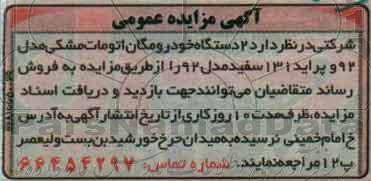 آگهی مزایده عمومی
شرکتی در نظر دارد ۲ دستگاه خودرو مگان اتومات مشکی مدل
۹۲ و پراید ۱۳۱ سفید مدل ۹۲ را از طریق مزایده به فروش
رساند متقاضیان می‌توانند جهت بازدید و دریافت اسناد
مزایده، ظرف مدت ۱۰ روز کاری از تاریخ انتشار آگهی به آدرس
خ امام خمینی نرسیده به میدان حر خ خورشید بن بست ولیعصر
پ ۱۲ مراجعه نمایند. شماره تماس: ۶۶۴۵۴۲۹۷